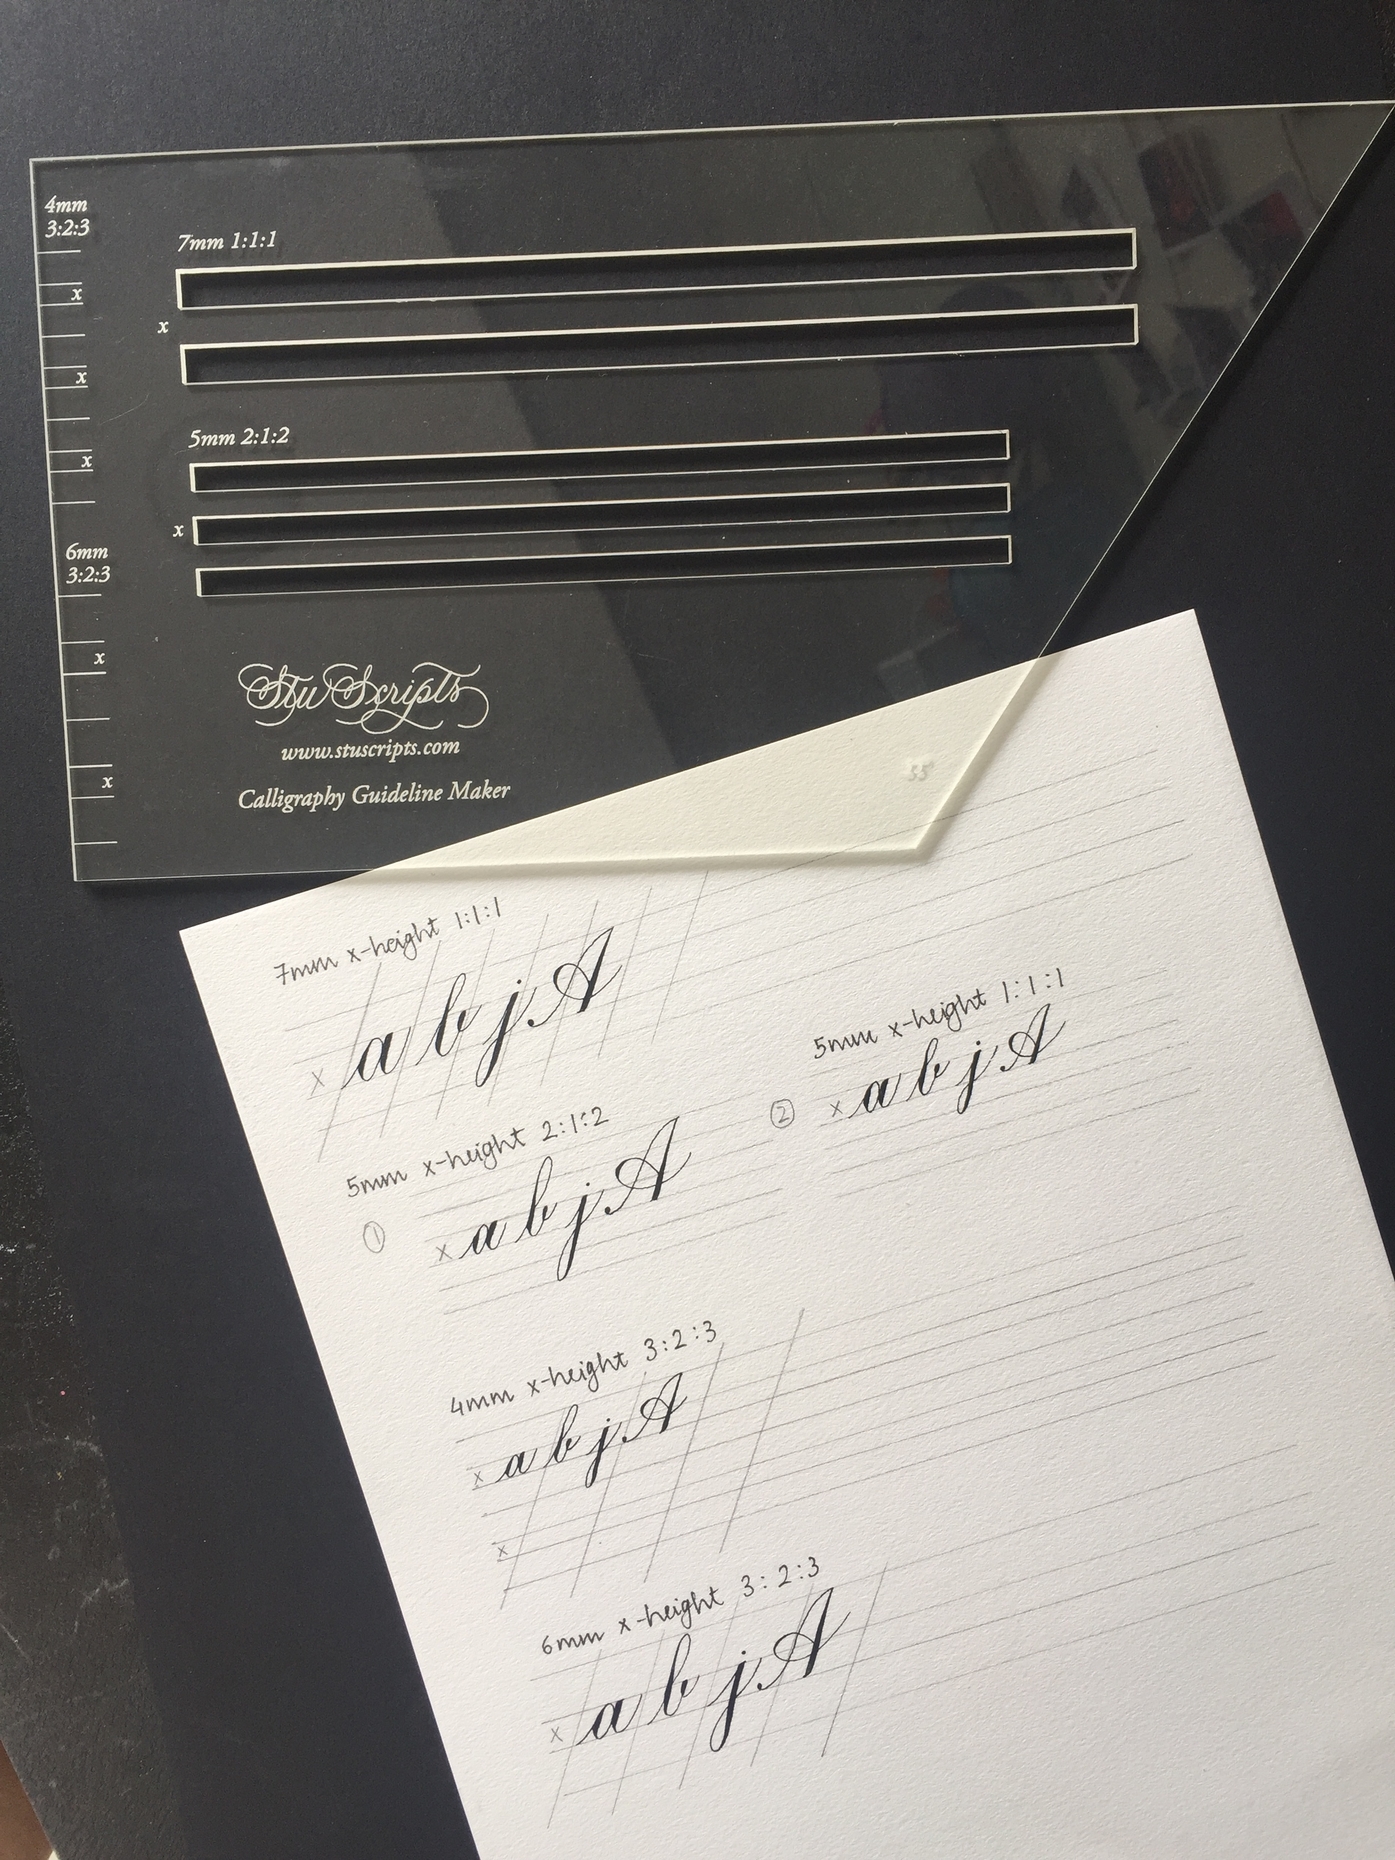 4mm
3:2:3
x
x
x
6mm
3:2:3
x
x
7mm 1:1:1
x
5mm 2:1:2
x
Stu Scripts
www.stuscripts.com
Calligraphy Guideline Maker
55°
7mm x-height 1:1:1
x a b j A
5mm x-height 2:1:2
1 x a b j A
5mm x-height 1:1:1
2 x a b j A
4mm x-height 3:2:3
x a b j A
x
6mm x-height 3:2:3
x a b j A